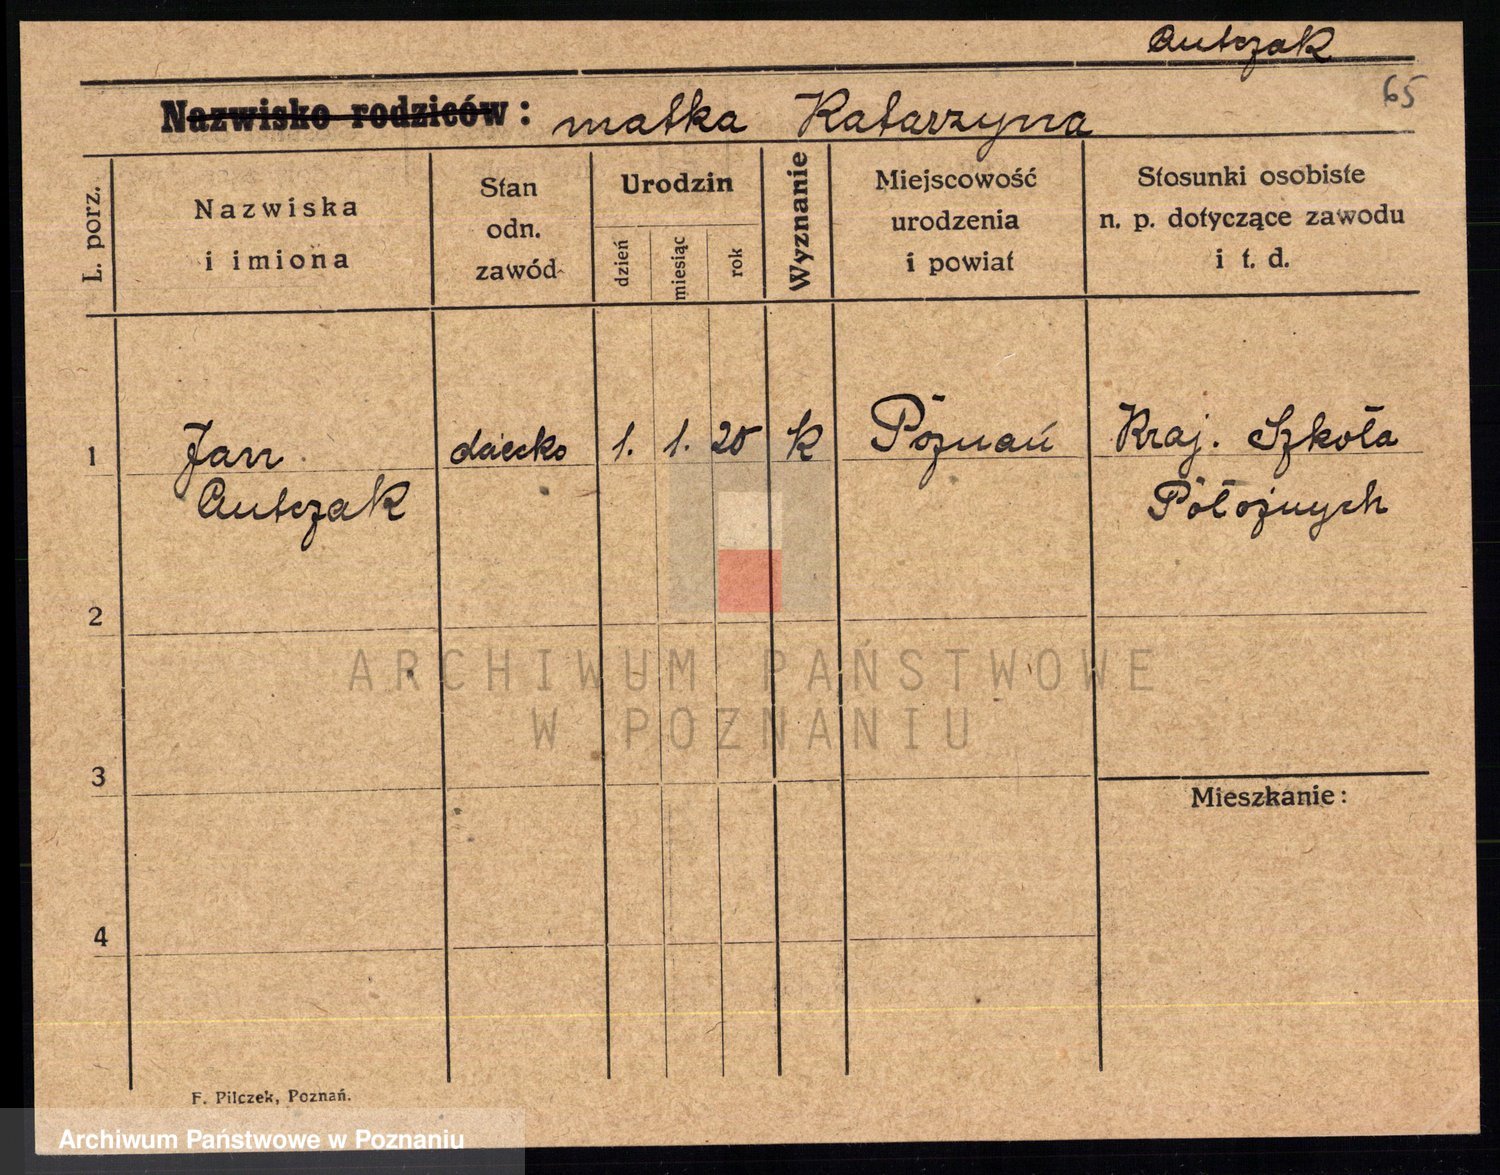 Antczak
65
Nazwisko rodziców: matka Katarzyna
L. porz.
Nazwiska
i imiona
Stan
odn.
zawód
Urodzin
dzień
miesiąc
rok
Wyznanie
Miejscowość
urodzenia
i powiat
Stosunki osobiste
n. p. dotyczące zawodu
i t. d.
1 Jan dziecko 1. 1. 20 k Poznań Kraj. Szkoła
Antczak Położnych
2
3
Mieszkanie:
4
F. Pilczek, Poznań.
ARCHIWUM PAŃSTWOWE
W POZNANIU
Archiwum Państwowe w Poznaniu